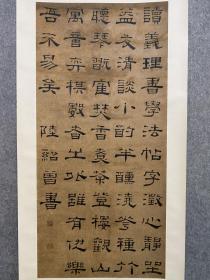 讀義理書學法帖字澂心靜坐
益友清談小酌半醺澆花種竹
聽琴翫隺焚香煮茶登樓觀山
寓意弈棋數者之外雖有他樂
吾不易矣 陸紹曾書